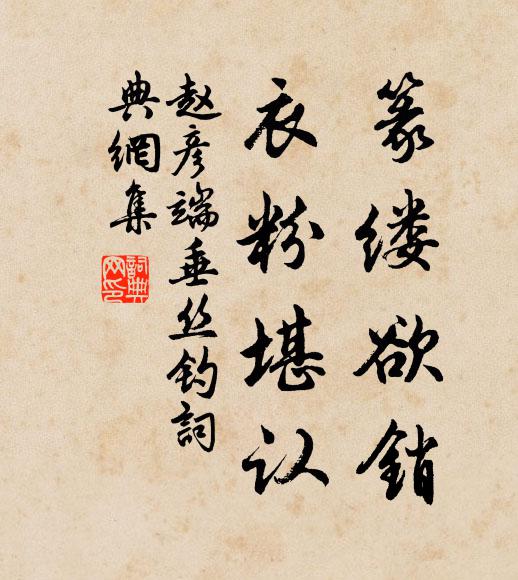 篆缕欲銷
衣粉堪认
赵彦端垂丝钓詞
典網集
詞典網印